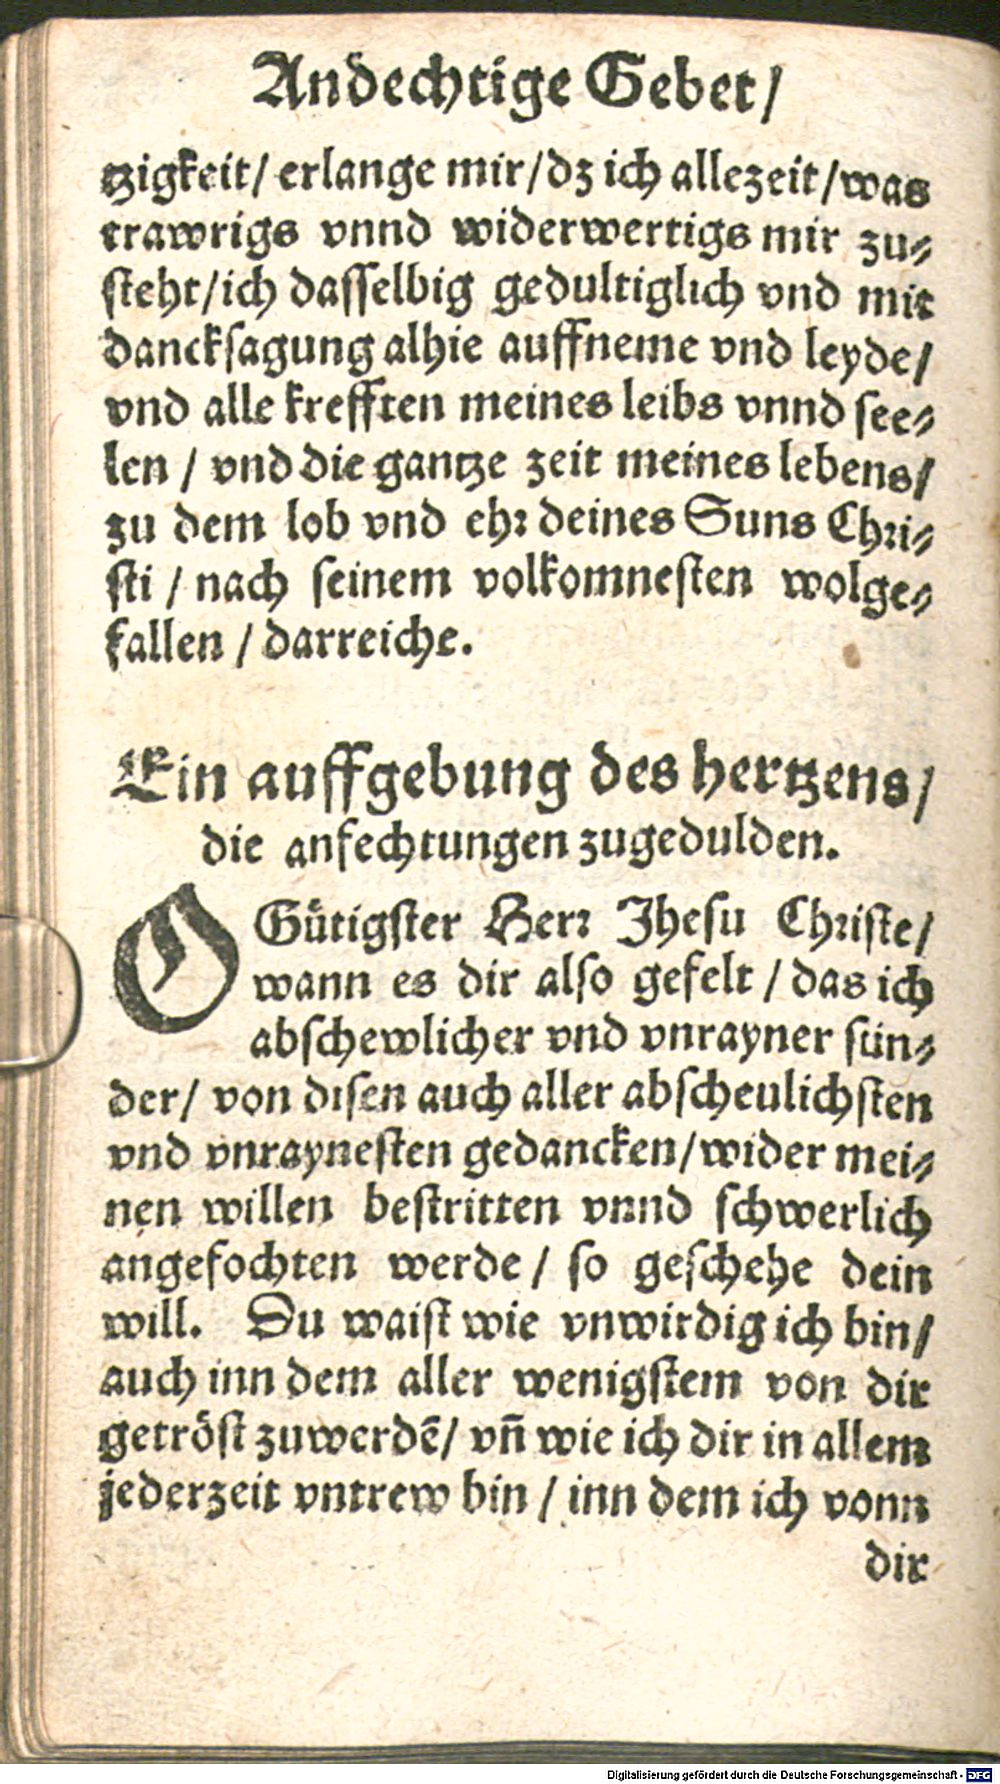 Andechtige Gebet/
tzigkeit/ erlange mir/ dz ich allezeit/ was
trawrigs vnnd widerwertigs mir zu⸗
steht/ ich dasselbig gedultiglich vnd mit
dancksagung alhie auffneme vnd leyde/
vnd alle krefften meines leibs vnnd see⸗
len / vnd die gantze zeit meines lebens/
zu dem lob vnd ehr deines Suns Chri⸗
sti / nach seinem volkomnesten wolge⸗
fallen / darreiche.
Ein auffgebung des hertzens/
die anfechtungen zugedulden.
O Gütigster Herr Jhesu Christe/
wann es dir also gefelt / das ich
abschewlicher vnd vnrayner sün⸗
der/ von disen auch aller abscheulichsten
vnd vnraynesten gedancken/ wider mei⸗
nen willen bestritten vnnd schwerlich
angefochten werde / so geschehe dein
will. Du waist wie vnwirdig ich bin/
auch inn dem aller wenigstem von dir
getröst zuwerdē/ vñ wie ich dir in allem
jederzeit vntrew bin / inn dem ich vonn
dir
Digitalisierung gefördert durch die Deutsche Forschungsgemeinschaft - DFG